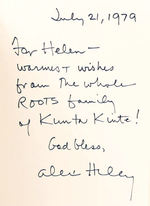 July 21, 1979
For Helen —
warmest wishes
from the whole
ROOTS family
of Kunta Kinte!
God bless,
Alex Haley